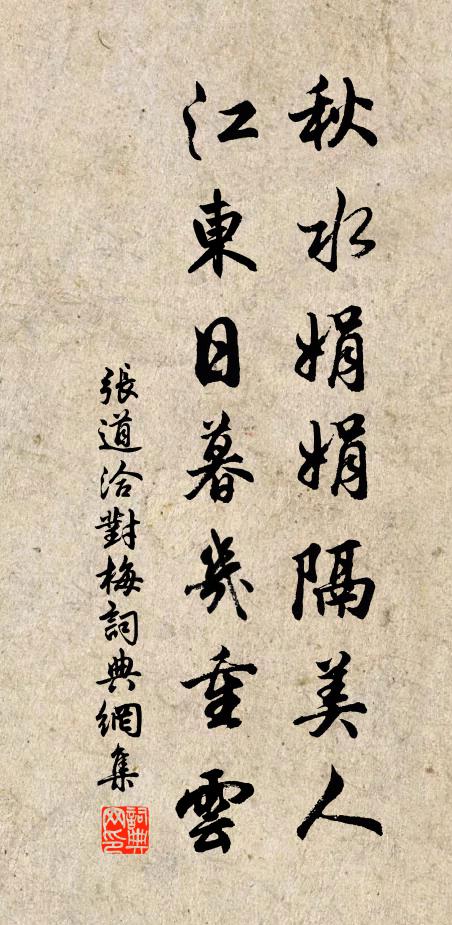 秋水娟娟隔美人
江東日暮幾重雲
張道洽對梅詞典網集
詞典網印